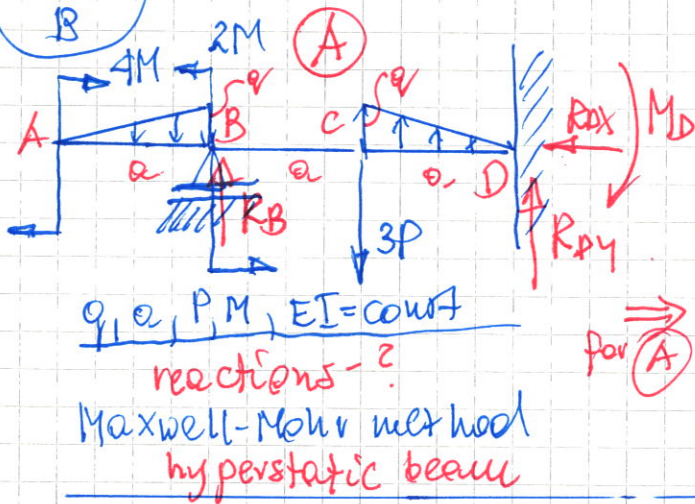 B
4M 2M A q
A B C q D
a a a
R_B 3P R_DX M_D R_DY
q, a, P, M, EI=const
reactions-?
for A
Maxwell-Mohr method
hyperstatic beam